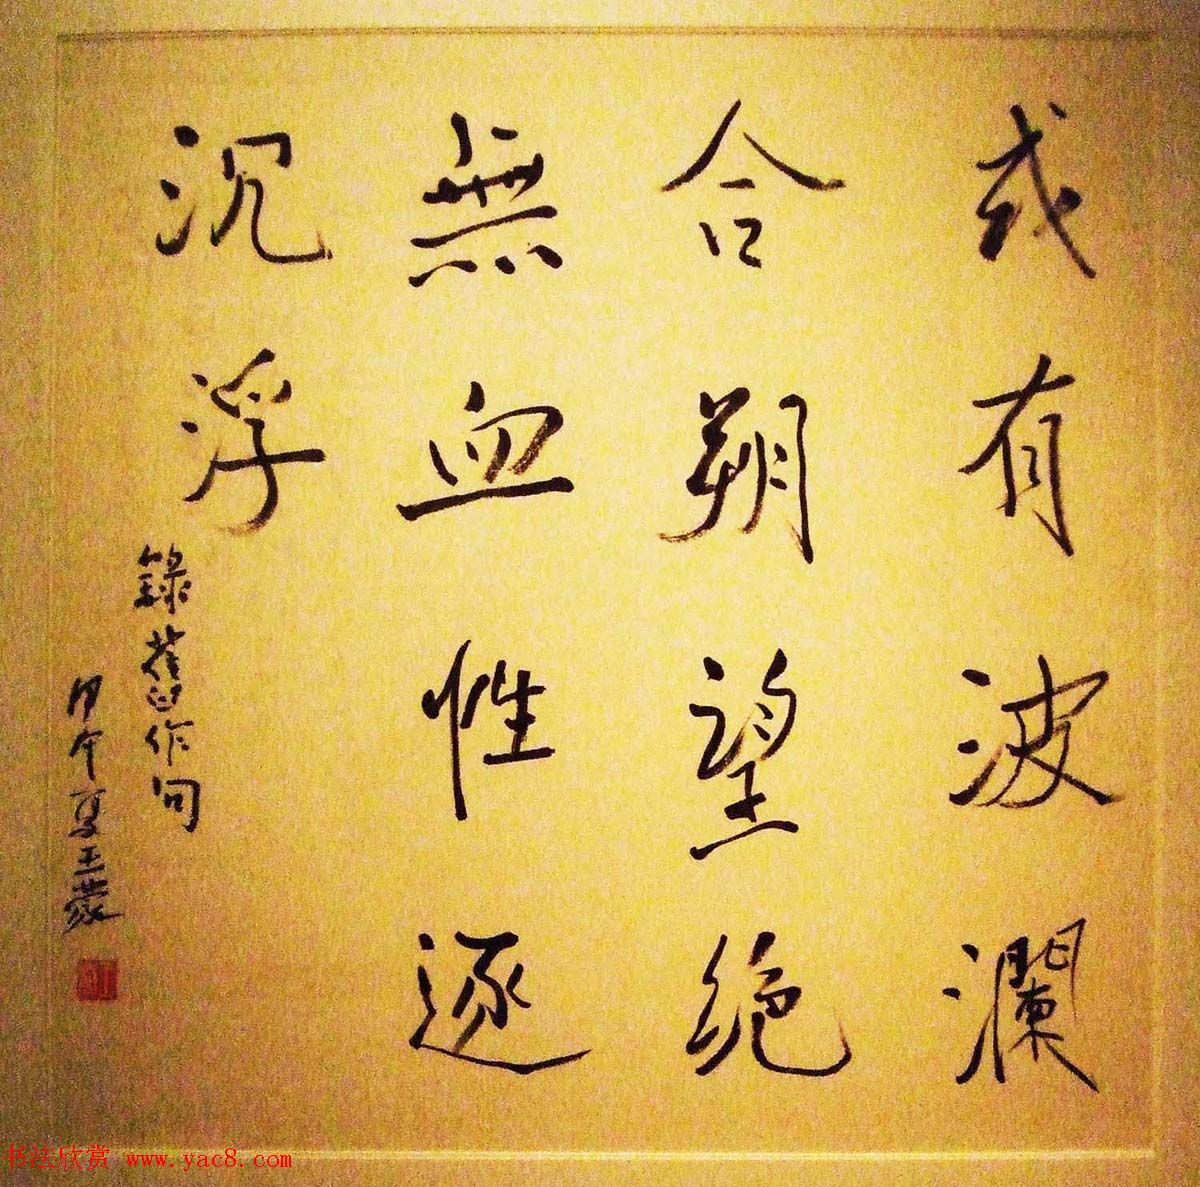 或有波瀾
合朔望絕
無血性逐
沉浮
錄舊作句
甲午夏王蒙
书法欣赏 www.yac8.com